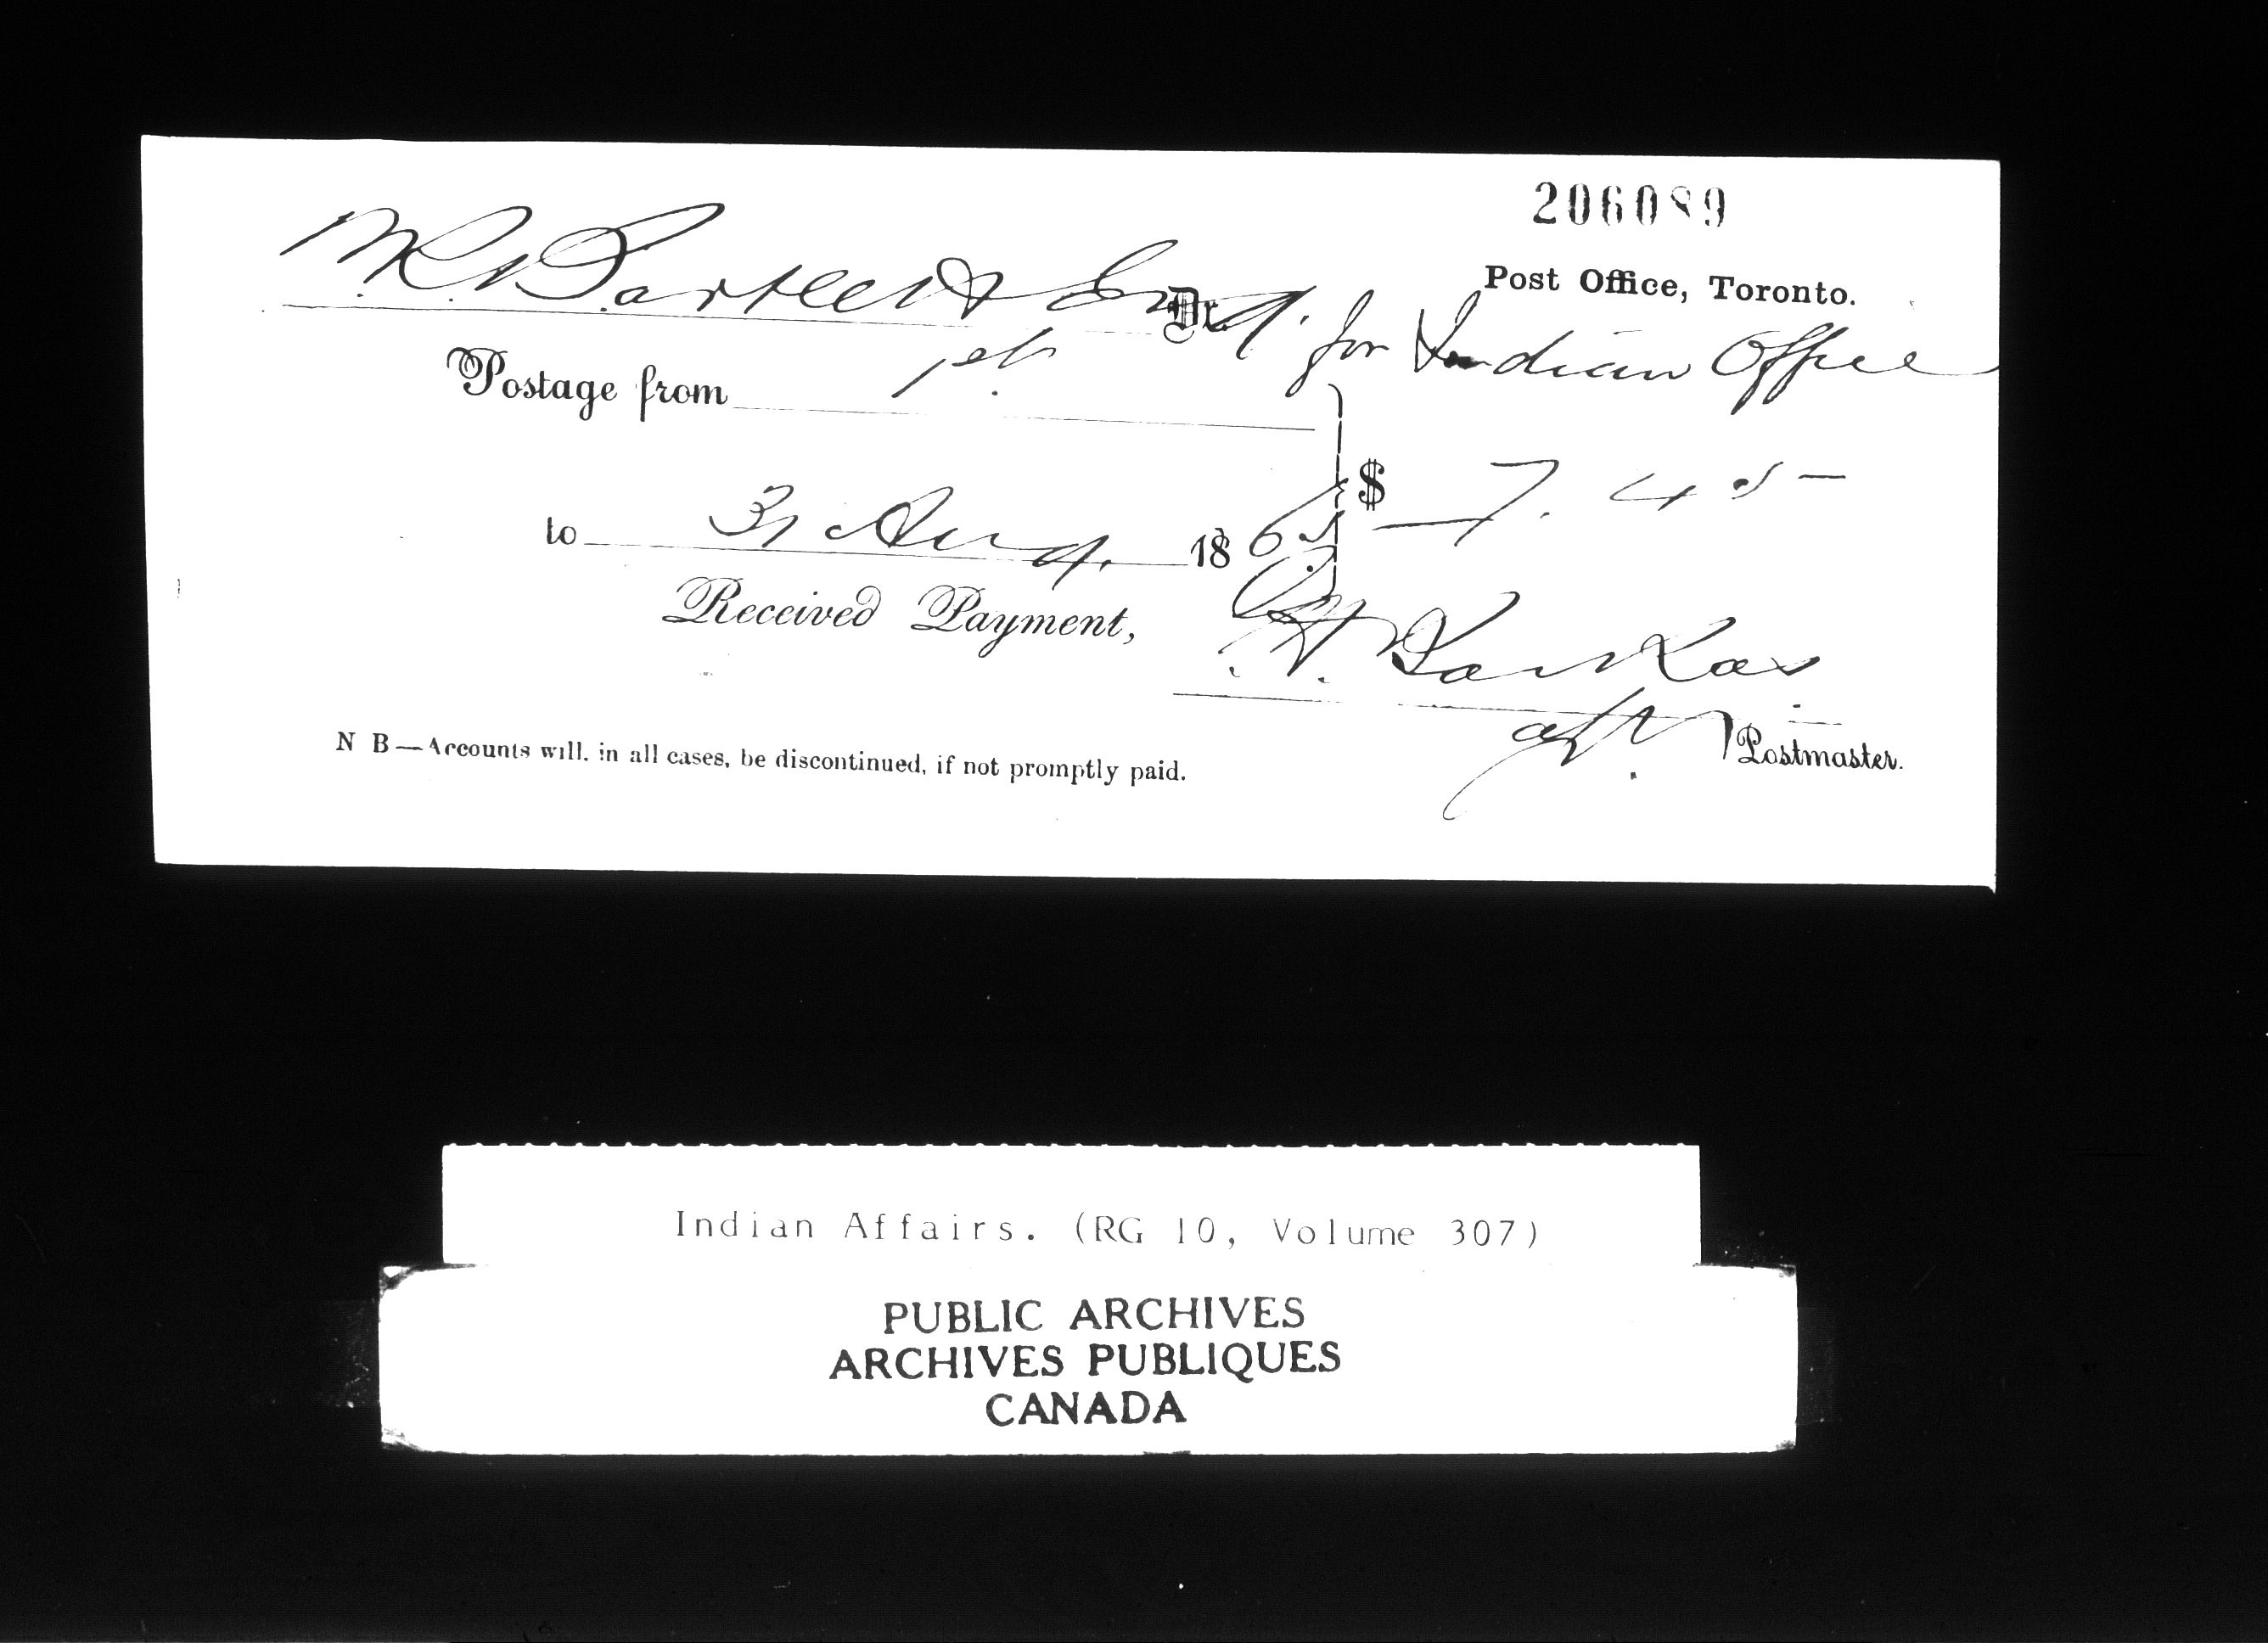 206089
Post Office, Toronto.
W. R. Bartlett Esq. Dr.
for Indian Office
Postage from 1st
to 31 Aug. 1865 $ 7.45
Received Payment,
Postmaster.
N B — Accounts will, in all cases, be discontinued, if not promptly paid.
Indian Affairs. (RG 10, Volume 307)
PUBLIC ARCHIVES
ARCHIVES PUBLIQUES
CANADA